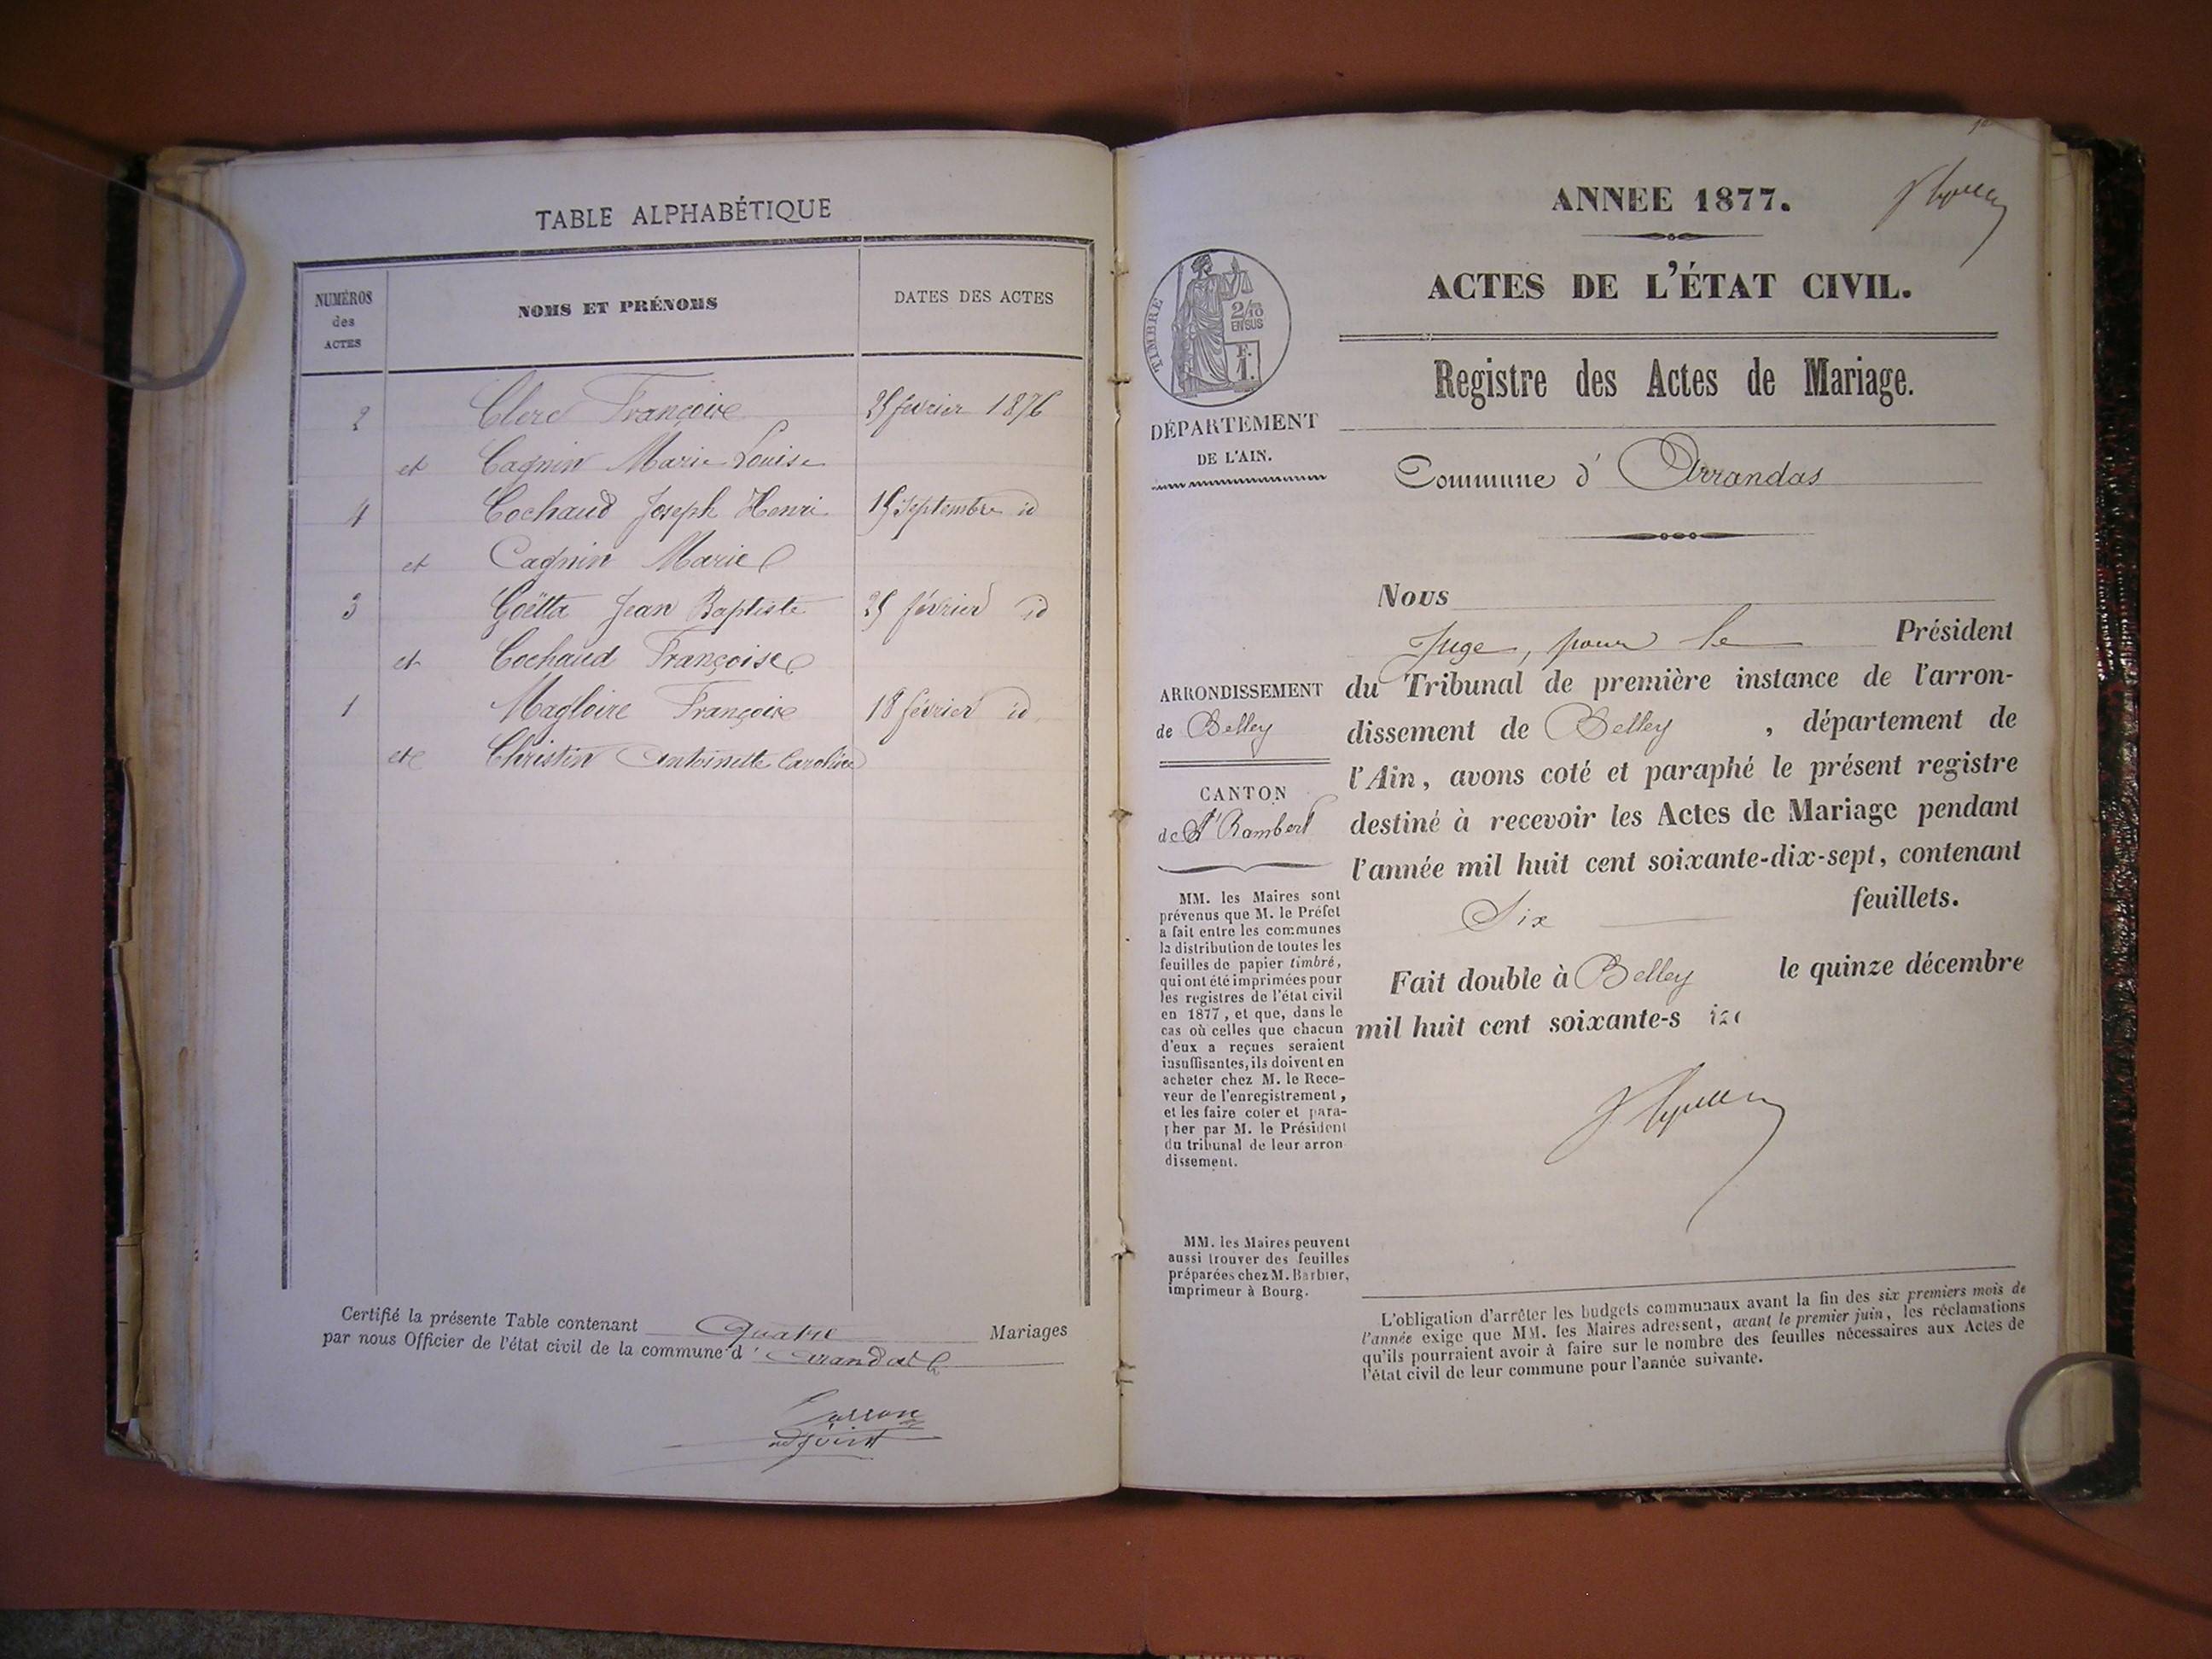 TABLE ALPHABÉTIQUE
NUMÉROS des ACTES
NOMS ET PRÉNOMS
DATES DES ACTES
2 Clerc François 25 février 1876
et Cagnin Marie Louise
4 Cochaud Joseph Henri 15 Septembre id
et Cagnin Marie
3 Goëtta Jean Baptiste 25 février id
et Cochaud Françoise
1 Magloire François 18 février id
et Christin Antoinette Caroline
Certifié la présente Table contenant Quatre Mariages
par nous Officier de l'état civil de la commune d' Arandas
adjoint
ANNEE 1877.
ACTES DE L'ÉTAT CIVIL.
TIMBRE
2/10
EN SUS
F.
1.
Registre des Actes de Mariage.
DÉPARTEMENT
DE L'AIN.
Commune d' Arrandas
Nous
Juge, pour le Président
du Tribunal de première instance de l'arron-
dissement de Belley , département de
l'Ain, avons coté et paraphé le présent registre
destiné à recevoir les Actes de Mariage pendant
l'année mil huit cent soixante-dix-sept, contenant
Six feuillets.
Fait double à Belley le quinze décembre
mil huit cent soixante-s
ARRONDISSEMENT
de Belley
CANTON
de St Rambert
MM. les Maires sont
prévenus que M. le Préfet
a fait entre les communes
la distribution de toutes les
feuilles de papier timbré,
qui ont été imprimées pour
les registres de l'état civil
en 1877, et que, dans le
cas où celles que chacun
d'eux a reçues seraient
insuffisantes, ils doivent en
acheter chez M. le Rece-
veur de l'enregistrement,
et les faire coter et para-
pher par M. le Président
du tribunal de leur arron
dissement.
MM. les Maires peuvent
aussi trouver des feuilles
préparées chez M. Barbier,
imprimeur à Bourg.
L'obligation d'arrêter les budgets communaux avant la fin des six premiers mois de
l'année exige que MM. les Maires adressent, avant le premier juin, les réclamations
qu'ils pourraient avoir à faire sur le nombre des feuilles nécessaires aux Actes de
l'état civil de leur commune pour l'année suivante.